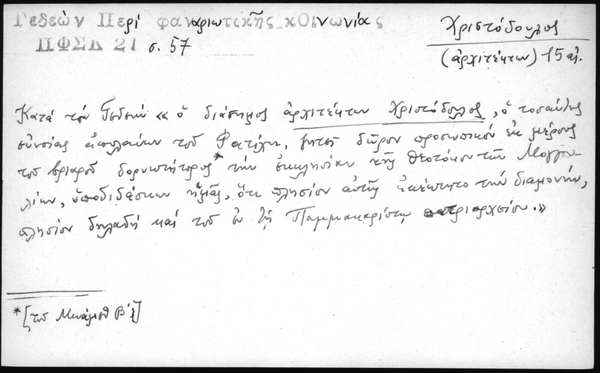 Γεδεὼν Περὶ φαναριωτικῆς κοινωνίας
ΠΦΣΛ 21 σ. 57
Χριστόδουλος
(ἀρχιτέκτων) 15 αἰ.
Κατὰ τὸν Γεδεὼν « ὁ διάσημος ἀρχιτέκτων Χριστόδουλος, ὁ τοσαύτης
εὐνοίας ἀπολαύων τοῦ Φατίχη, ζητεῖ δῶρον προσωπικὸν ἐκ μέρους
τοῦ βριαροῦ δορυκτήτορος* τὴν ἐκκλησίαν τῆς Θεοτόκου τῶν Μογγο-
λίων, ὑποδιδάσκων ἡμᾶς, ὅτι πλησίον αὐτῆς ἐκέκτητο τὴν διαμονήν,
πλησίον δηλαδὴ καὶ τοῦ ἐν τῇ Παμμακαρίστῳ πατριαρχείου.»
*[τοῦ Β']